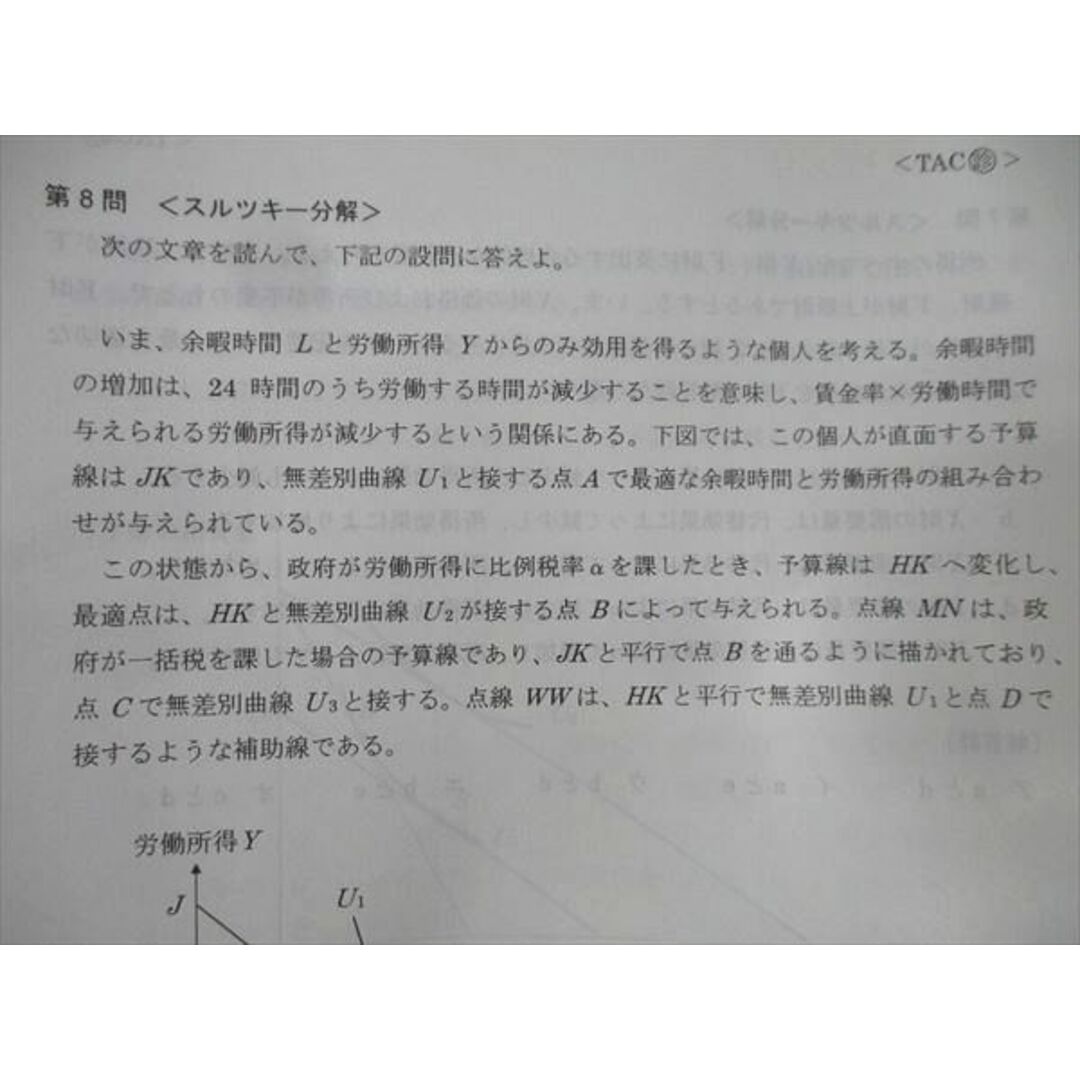 <TAC診>
第8問 <スルツキー分解>
次の文章を読んで、下記の設問に答えよ。
いま、余暇時間 L と労働所得 Y からのみ効用を得るような個人を考える。余暇時間
の増加は、24 時間のうち労働する時間が減少することを意味し、賃金率×労働時間で
与えられる労働所得が減少するという関係にある。下図では、この個人が直面する予算
線は JK であり、無差別曲線 U₁と接する点 A で最適な余暇時間と労働所得の組み合わ
せが与えられている。
この状態から、政府が労働所得に比例税率 α を課したとき、予算線は HK へ変化し、
最適点は、HK と無差別曲線 U₂が接する点 B によって与えられる。点線 MN は、政
府が一括税を課した場合の予算線であり、JK と平行で点 B を通るように描かれており、
点 C で無差別曲線 U₃と接する。点線 WW は、HK と平行で無差別曲線 U₁と点 D で
接するような補助線である。
労働所得 Y
J
U₁